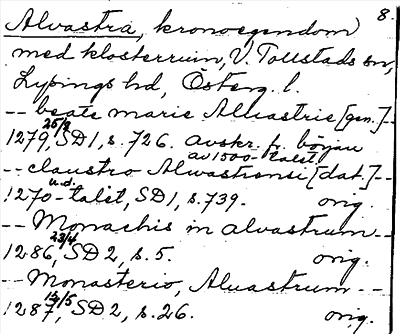 8.
Alvastra, kronoegendom
med klosterruin, V. Tollstads sn,
Lysings hd, Österg. l.
-- beate marie Aluastrie [gen.] --
1279 25/3, SD1, s. 726. avskr. fr. början
av 1500-talet.
-- claustro Alwastrensi [dat.] --
1270-talet u.d., SD1, s. 739. orig.
-- Monachis in alvastrum --
1286 23/4, SD2, s. 5. orig.
-- Monasterio, Aluastrum --
1287 14/5, SD2, s. 26. orig.